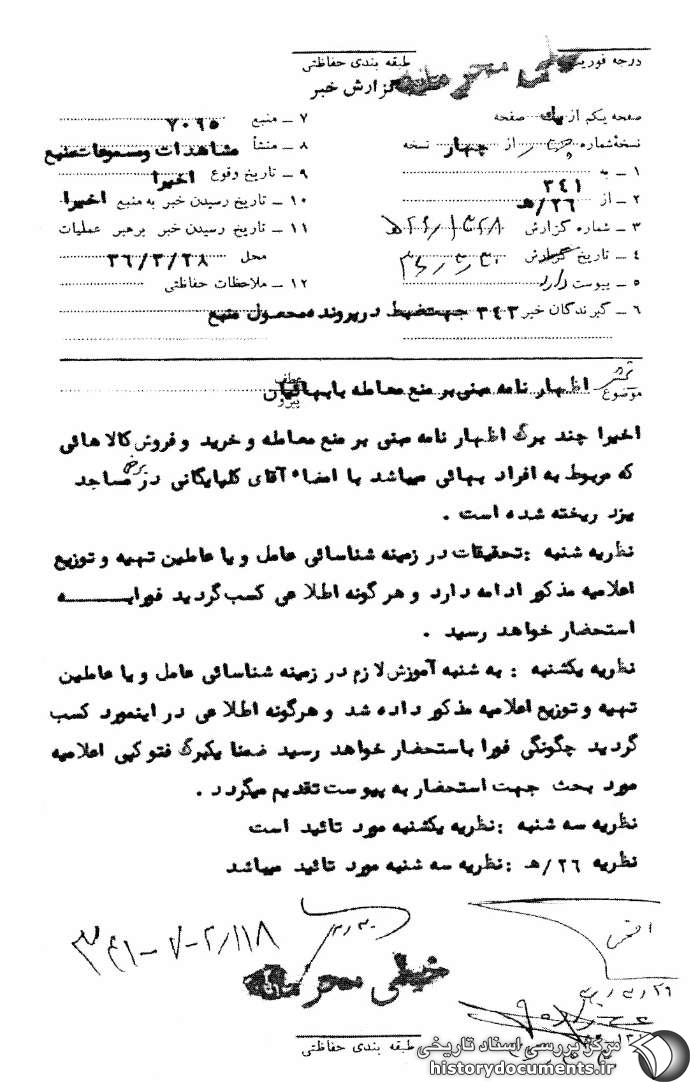 درجه فوریت
طبقه بندی حفاظتی
خیلی محرمانه
گزارش خبر
صفحه یکم از یک صفحه
نسخه شماره از چهار نسخه
۱ ـ به ۳۴۱
۲ ـ از ۲۶/هـ
۳ ـ شماره گزارش
۴ ـ تاریخ گزارش
۵ ـ پیوست دارد
۶ ـ گیرندگان خبر ۳۴۳ جهت ضبط در پرونده محصول منبع
۷ ـ منبع ۷۰۹۵
۸ ـ منشأ مشاهدات و مسموعات منبع
۹ ـ تاریخ وقوع اخیرا
۱۰ ـ تاریخ رسیدن خبر به منبع اخیرا
۱۱ ـ تاریخ رسیدن خبر برهبر عملیات
محل ۳۶/۳/۲۸
۱۲ ـ ملاحظات حفاظتی
موضوع اظهار نامه مبنی بر منع معامله با بهائیان
عطف
پیرو
اخیرا چند برگ اظهار نامه مبنی بر منع معامله و خرید و فروش کالا هائی
که مربوط به افراد بهائی میباشد با امضاء آقای گلپایگانی در برخی مساجد
یزد ریخته شده است .
نظریه شنبه : تحقیقات در زمینه شناسائی عامل و یا عاملین تهیه و توزیع
اعلامیه مذکور ادامه دارد و هر گونه اطلاعی کسب گردید فورا بـــه
استحضار خواهد رسید .
نظریه یکشنبه : به شنبه آموزش لازم در زمینه شناسائی عامل و یا عاملین
تهیه و توزیع اعلامیه مذکور داده شد و هرگونه اطلاعی در اینمورد کسب
گردید چگونگی فورا باستحضار خواهد رسید ضمنا یکبرگ فتوکپی اعلامیه
مورد بحث جهت استحضار به پیوست تقدیم میگردد .
نظریه سه شنبه : نظریه یکشنبه مورد تائید است
نظریه ۲۶/هـ : نظریه سه شنبه مورد تائید میباشد
۳۴۱-۷-۲/۱۱۸
خیلی محرمانه
طبقه بندی حفاظتی
مرکز بررسی اسناد تاریخی
historydocuments.ir